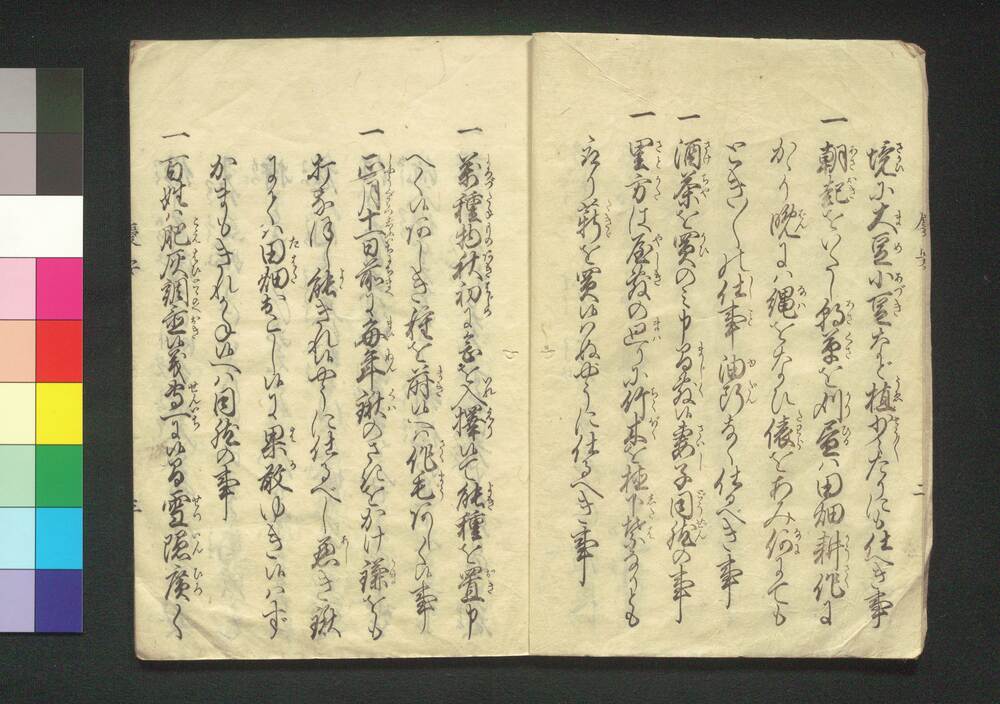 境に大豆小豆など植少したりにも仕へき事
一 朝起をいたし朝草を刈昼ハ田畑耕作に
かゝり晩にハ縄をなひ俵をあみ何にても
それ〳〵の仕事油断なく仕るべき事
一 酒茶を買のミ申間敷候妻子同然の事
一 里方は屋敷の廻りに竹木を植下葉なりとも
取り薪を買候ハぬやうに仕るへき事
一 万種物秋初に念を入撰候て能種を置申
へく候あしき種を蒔候へハ作毛あしく候事
一 正月十一日前に毎年鍬のさきをかけ鎌をも
打なほし能きれ候やうに仕るへし悪き鍬
にてハ田畑おこし候に果敢ゆき候ハず
かまもきれかね候へハ同然の事
一 百姓ハ肥灰調置候義専一に候間雪隠広く